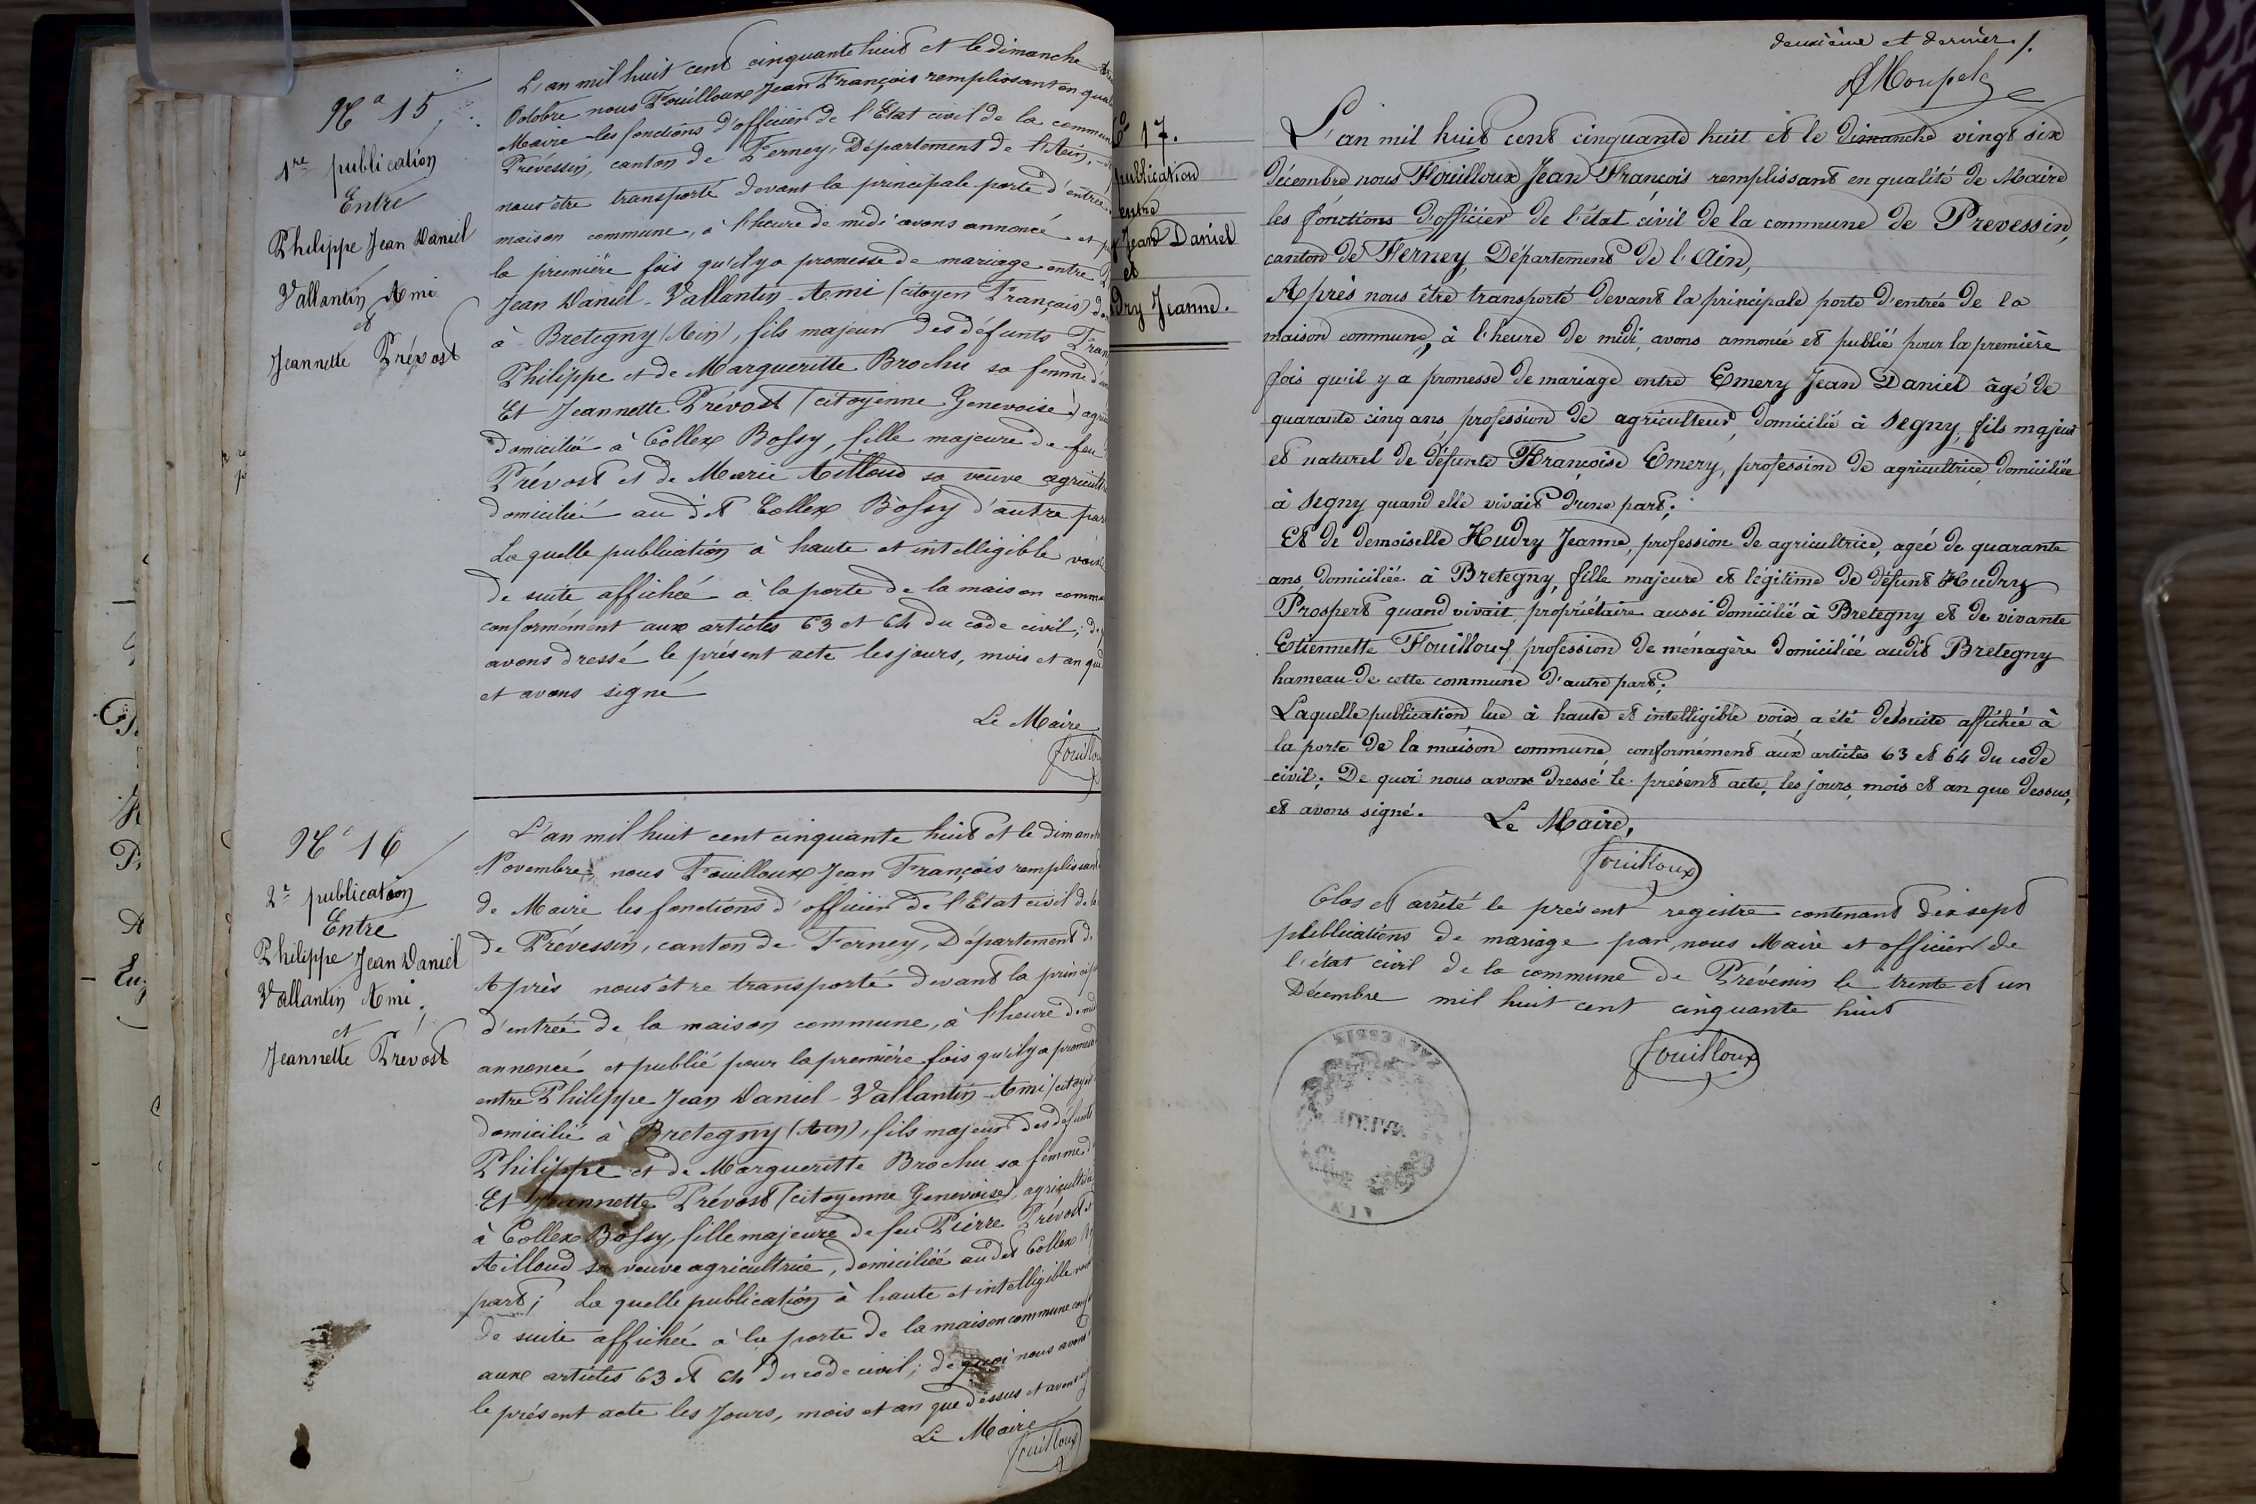 Nº 15
1re publication
Entre
Philippe Jean Daniel
Vallantin Ami
et
Jeannette Prévost
L'an mil huit cent cinquante huit et le dimanche
Octobre nous Fouilloux Jean François remplissant en qual
Maire les fonctions d'officier de l'Etat civil de la commun
Prévessin, canton de Ferney, Département de l'Ain,
nous être transporté devant la principale porte d'entrée
maison commune, à l'heure de midi avons annoncé et p
la première fois qu'il y a promesse de mariage entre P
Jean Daniel-Vallantin-Ami (citoyen Français) d
à Bretegny (Ain), fils majeur des défunts Fran
Philippe et de Margueritte Brochu sa femme d'
Et Jeannette Prévost (citoyenne Genevoise) agri
domiciliée à Collex Bossy, fille majeure de feu
Prévost et de Marie Ailloud sa veuve agricult
domiciliée au dit Collex Bossy d'autre par
La quelle publication à haute et intelligible voix
de suite affichée à la porte de la maison comm
conformément aux articles 63 et 64 du code civil; de
avons dressé le présent acte les jours, mois et an que
et avons signé
Le Maire
Fouillou
Nº 16
2e publication
Entre
Philippe Jean Daniel
Vallantin Ami
et
Jeannette Prévost
L'an mil huit cent cinquante huit et le diman
Novembre nous Fouilloux Jean François remplissant
de Maire les fonctions d'officier de l'Etat civil de la
de Prévessin, canton de Ferney, Département de
Après nous être transporté devant la princip
d'entrée de la maison commune, à l'heure de mid
annoncé et publié pour la première fois qu'il y a promess
entre Philippe Jean Daniel-Vallantin-Ami (citoyen
domicilié à Bretegny (Ain), fils majeur des défunts
Philippe et de Margueritte Brochu sa femme d'
Et Jeannette Prévost (citoyenne Genevoise), agricultri
à Collex Bossy, fille majeure de feu Pierre Prévost
Ailloud sa veuve agricultrice, domiciliée au dit Collex
part; La quelle publication à haute et intelligible voix
de suite affichée à la porte de la maison commune conf
aux articles 63 et 64 du code civil; de quoi nous avons
le présent acte les jours, mois et an que dessus et avons
Le Maire
Fouilloux
deuxième et dernier /.
17.
publication
entre
Jean Daniel
et
dry Jeanne.
L'an mil huit cent cinquante huit et le dimanche vingt six
décembre nous Fouilloux Jean François remplissant en qualité de Maire
les fonctions d'officier de l'état civil de la commune de Prevessin,
canton de Ferney, Département de l'Ain,
Après nous être transporté devant la principale porte d'entrée de la
maison commune, à l'heure de midi, avons annoncé et publié pour la première
fois qu'il y a promesse de mariage entre Emery Jean Daniel âgé de
quarante cinq ans profession de agriculteur, domicilié à Segny, fils majeur
et naturel de défunte Françoise Emery, profession de agricultrice, domiciliée
à Segny quand elle vivait d'une part;
Et de demoiselle Hudry Jeanne, profession de agricultrice, ageé de quarante
ans, domiciliée à Bretegny, fille majeure et légitime de défunt Hudry
Prospert quand vivait propriétaire aussi domicilié à Bretegny et de vivante
Etiennette Fouilloux profession de ménagère domiciliée audit Bretegny
hameau de cette commune d'autre part;
Laquelle publication lue à haute et intelligible voix a été desuite affichée à
la porte de la maison commune conformément aux articles 63 et 64 du code
civil; De quoi nous avons dressé le présent acte, les jours, mois et an que dessus,
et avons signé. Le Maire,
Fouilloux
Clos et arrêté le présent registre contenant dix sept
publications de mariage par nous Maire et officier de
l'état civil de la commune de Prévessin le trente et un
Décembre mil huit cent cinquante huit
Fouilloux
MAIRIE
AIN